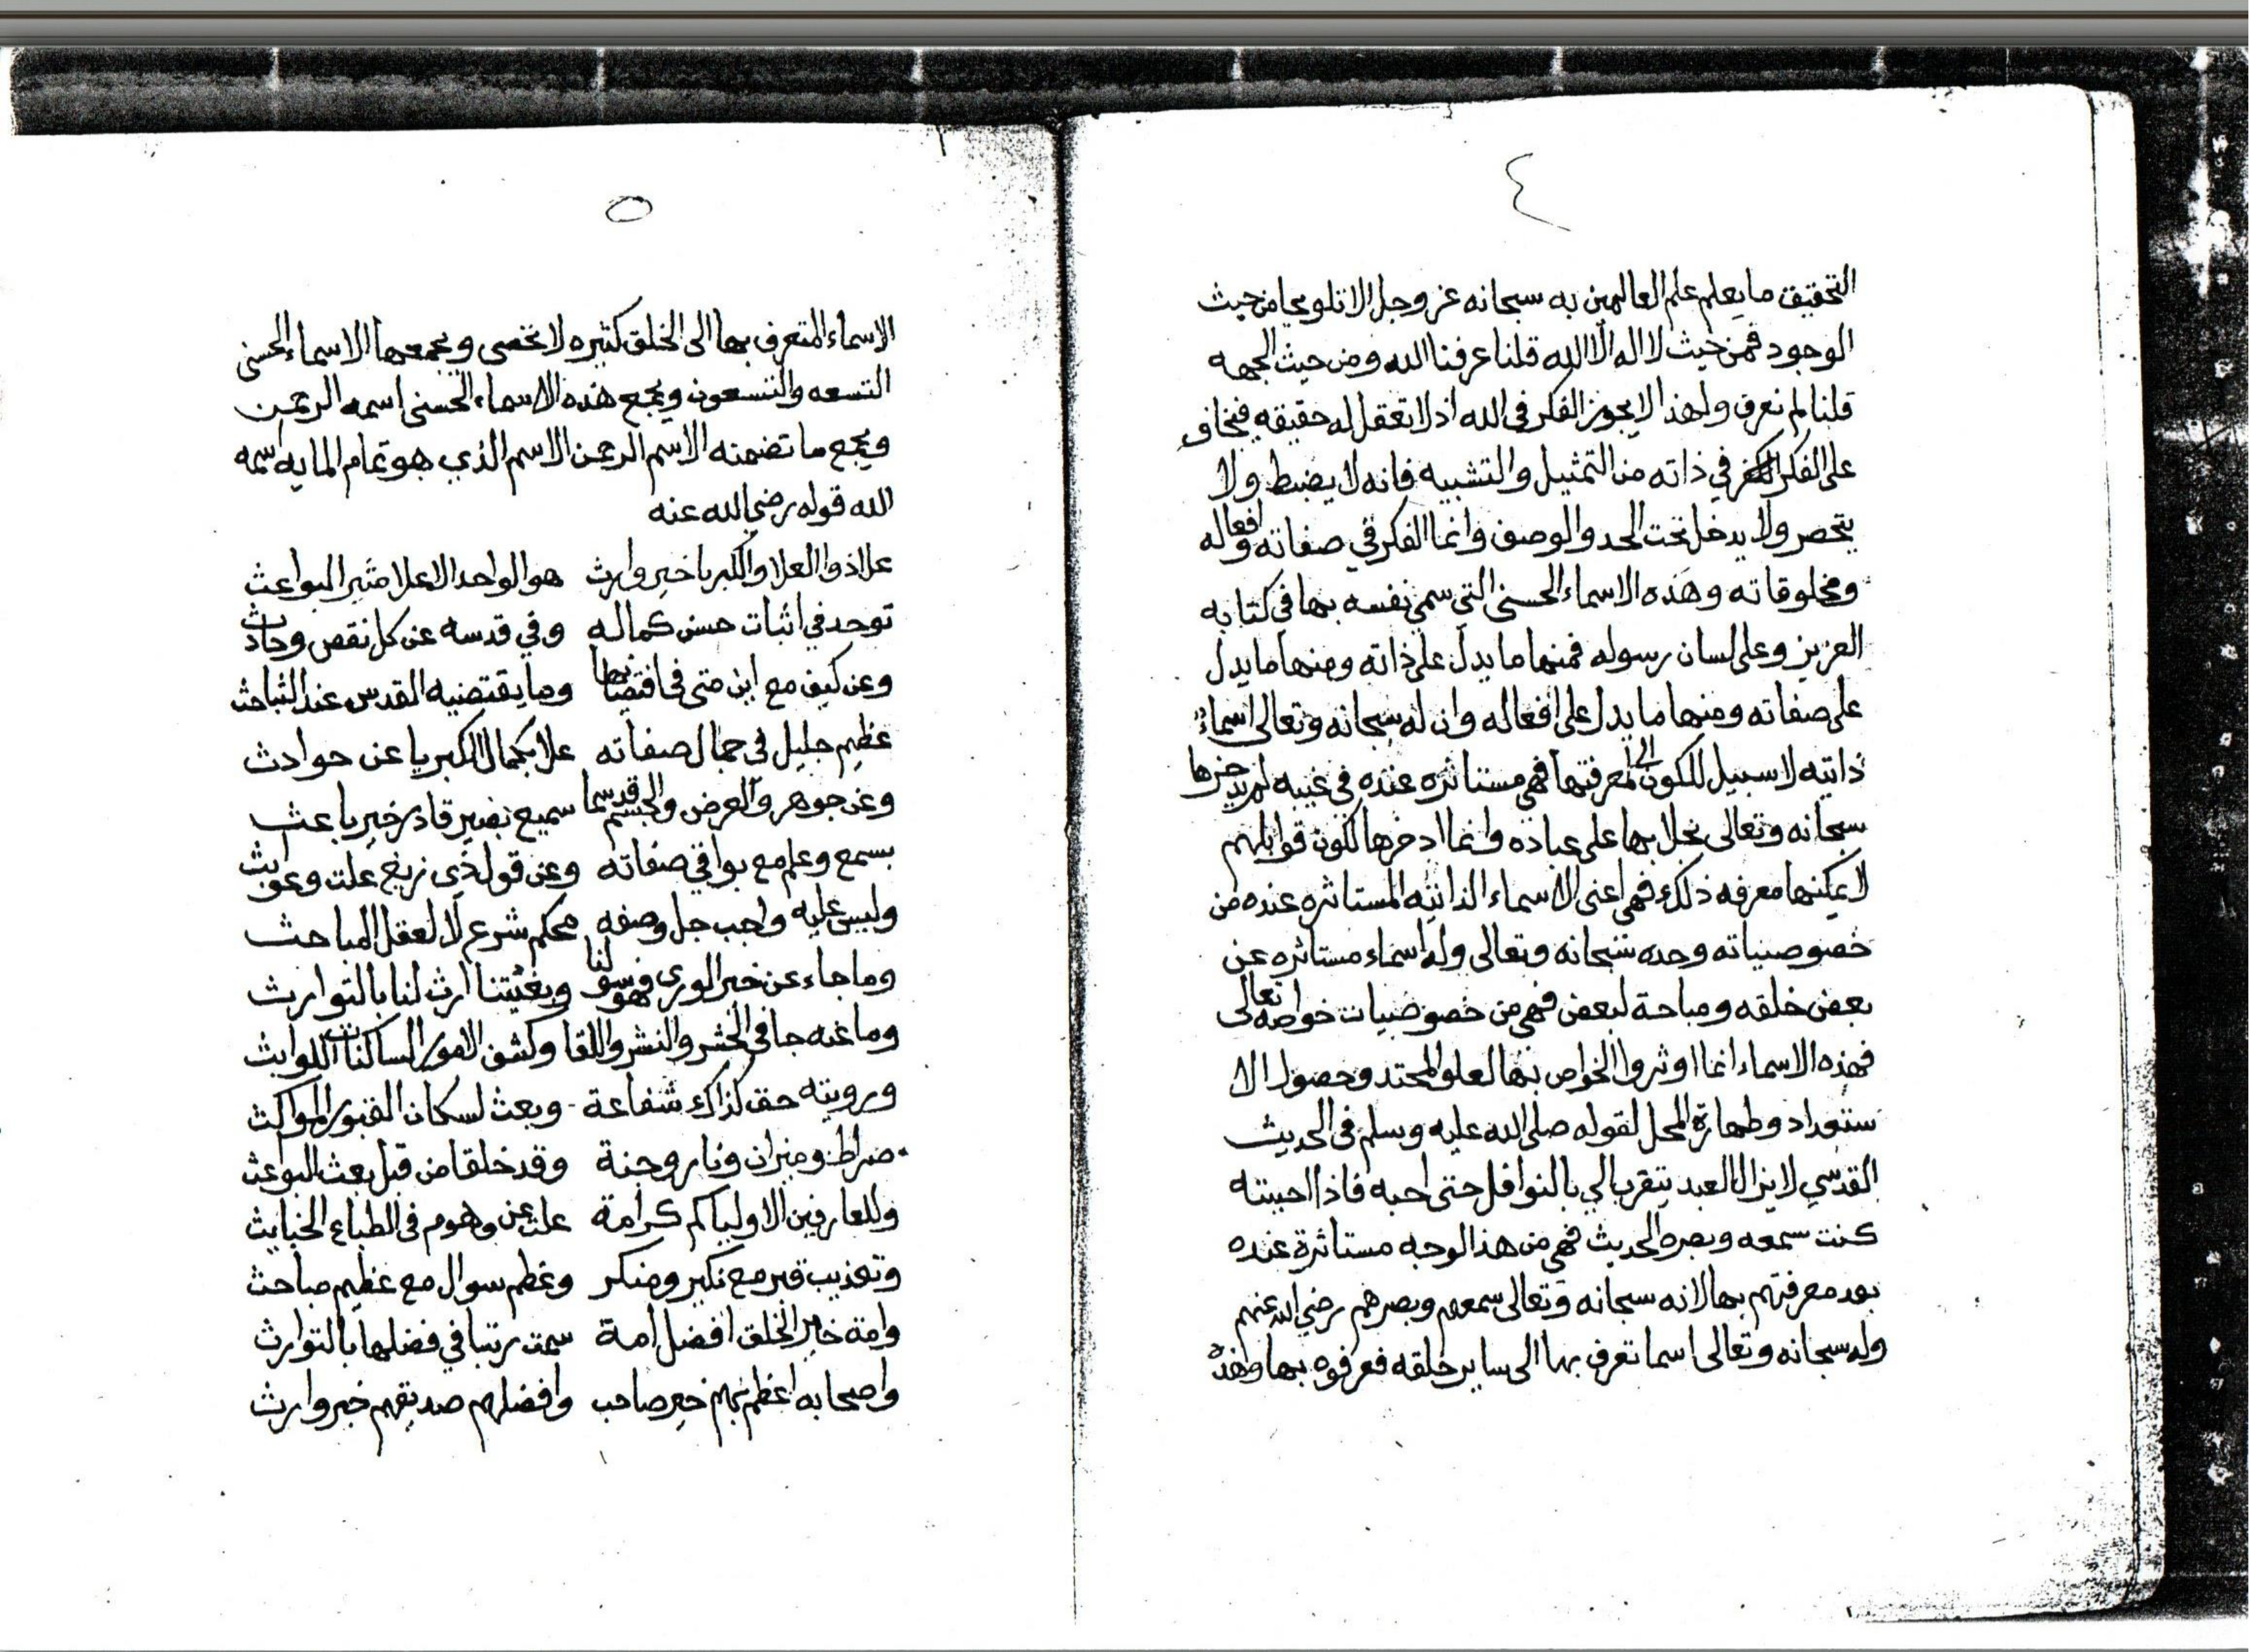 ٤
التحقيق ما يعلم علم العالمين به سبحانه عز وجل الا تلويحا من حيث
الوجود فمن حيث لا اله الا الله قلنا عرفنا الله ومن حيث الجهه
قلنا لم نعرف ولهذا لا يجوز الفكر في الله اذ لا تعقل له حقيقه فيخاف
على الفكر في ذاته من التمثيل والتشبيه فانه لا يضبط ولا
يتحصر ولا يدخل تحت الحد والوصف وانما الفكر في صفاته وافعاله
ومخلوقاته وهذه الاسماء الحسنى التي سمى نفسه بها في كتابه
العزيز وعلى لسان رسوله فمنها ما يدل على ذاته ومنها ما يدل
على صفاته ومنها ما يدل على افعاله وان له سبحانه وتعالى اسماء
ذاتيه لا سبيل للكون الى معرفتها فهي مستاثره عنده في غيبه لم يدخرها
سبحانه وتعالى بخلا بها على عباده وانما ادخرها لكون قوابلهم
لا يمكنها معرفه ذلك فهي اعني الاسماء الذاتيه المستاثره عنده من
خصوصياته وحده سبحانه وتعالى وله اسماء مستاثره عن
بعض خلقه ومباحة لبعض فهي من خصوصيات خواصه تعالى
فهذه الاسماء انما اوثروا الخواص بها لعلو المحتد وحصول الا
ستعداد وطهارة المحل لقوله صلى الله عليه وسلم في الحديث
القدسي لا يزال العبد يتقرب الي بالنوافل حتى احبه فاذا احببته
كنت سمعه وبصره الحديث فهي من هذا الوجه مستاثرة عنده
بعد معرفتهم بها لانه سبحانه وتعالى سمعهم وبصرهم رضي الله عنهم
وله سبحانه وتعالى اسما تعرف بها الى ساير خلقه فعرفوه بها وهذه
٥
الاسماء المتعرف بها الى الخلق كثيره لا تحصى ويجمعها الاسماء الحسنى
التسعه والتسعون ويجمع هذه الاسماء الحسنى اسمه الرحمن
ويجمع ما تضمنه الاسم الرحمن الاسم الذي هو تمام المايه اسمه
الله قوله رضي الله عنه
علا ذو العلا والكبريا خير وارث هو الواحد الاعلا مثير البواعث
توحد في اثبات حسن كماله وفي قدسه عن كل نقص وحادث
وعن كيف مع اين متى في اقتضابها وما يقتضيه القدس عند التباحث
عظيم جليل في جمال صفاته علا بكمال الكبريا عن حوادث
وعن جوهر والعرض والجسم قد سما سميع بصير قادر خير باعث
بسمع وعلم مع بواقي صفاته وعن قول ذي زيغ علت وعوابث
وليس عليه واجب جل وصفه بحكم شرع لا لعقل المباحث
وما جاء عن خير الورى فهو سولنا وبغيتنا ارث لنا بالتوارث
وما عنه جا في الحشر والنشر واللقا وكشف الامور الساكنات اللوابث
ورويته حق كذاك شفاعة - وبعث لسكان القبور المواكث
صراط وميزان ونار وجنة وقد خلقا من قبل بعث البواعث
وللعارفين الاوليا كم كرامة علت عن وهوم في الطباع الخبايث
وتعذيب قبر مع نكير ومنكر وعظم سوال مع عظيم مباحث
وامة خير الخلق افضل امة سمت رتبا في فضلها بالتوارث
واصحابه اعظم بهم خير صاحب وافضلهم صديقهم خير وارث